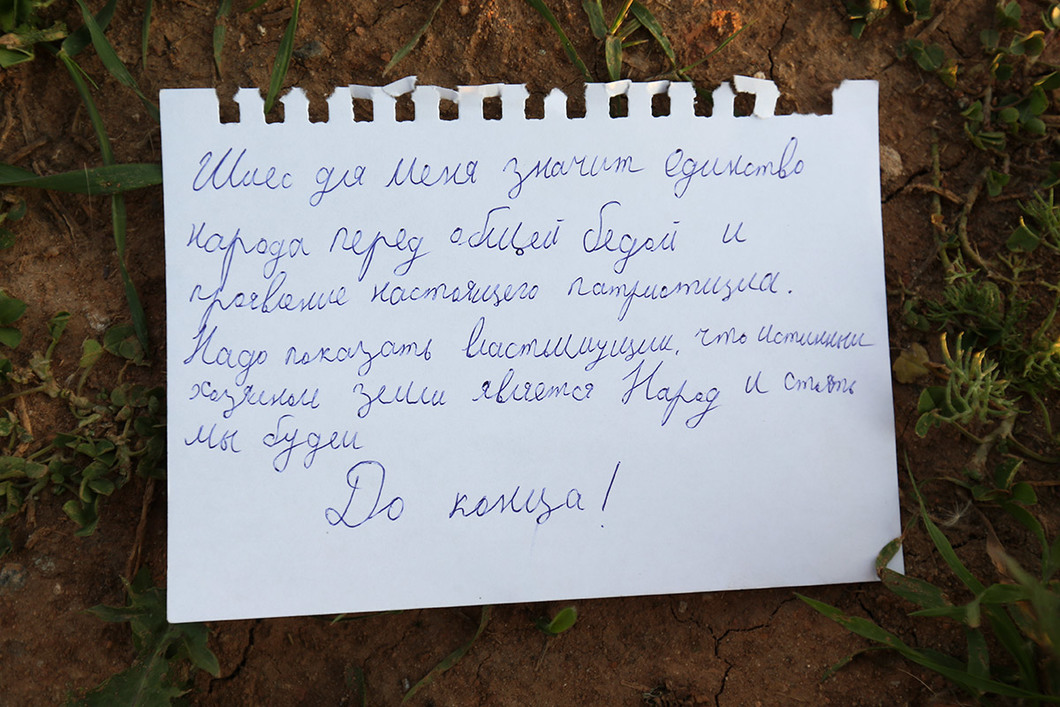 Шиес для меня значит единство
народа перед общей бедой и
проявление настоящего патриотизма.
Надо показать властимущим, что истинным
хозяином земли является Народ и стоять
мы будем
До конца!